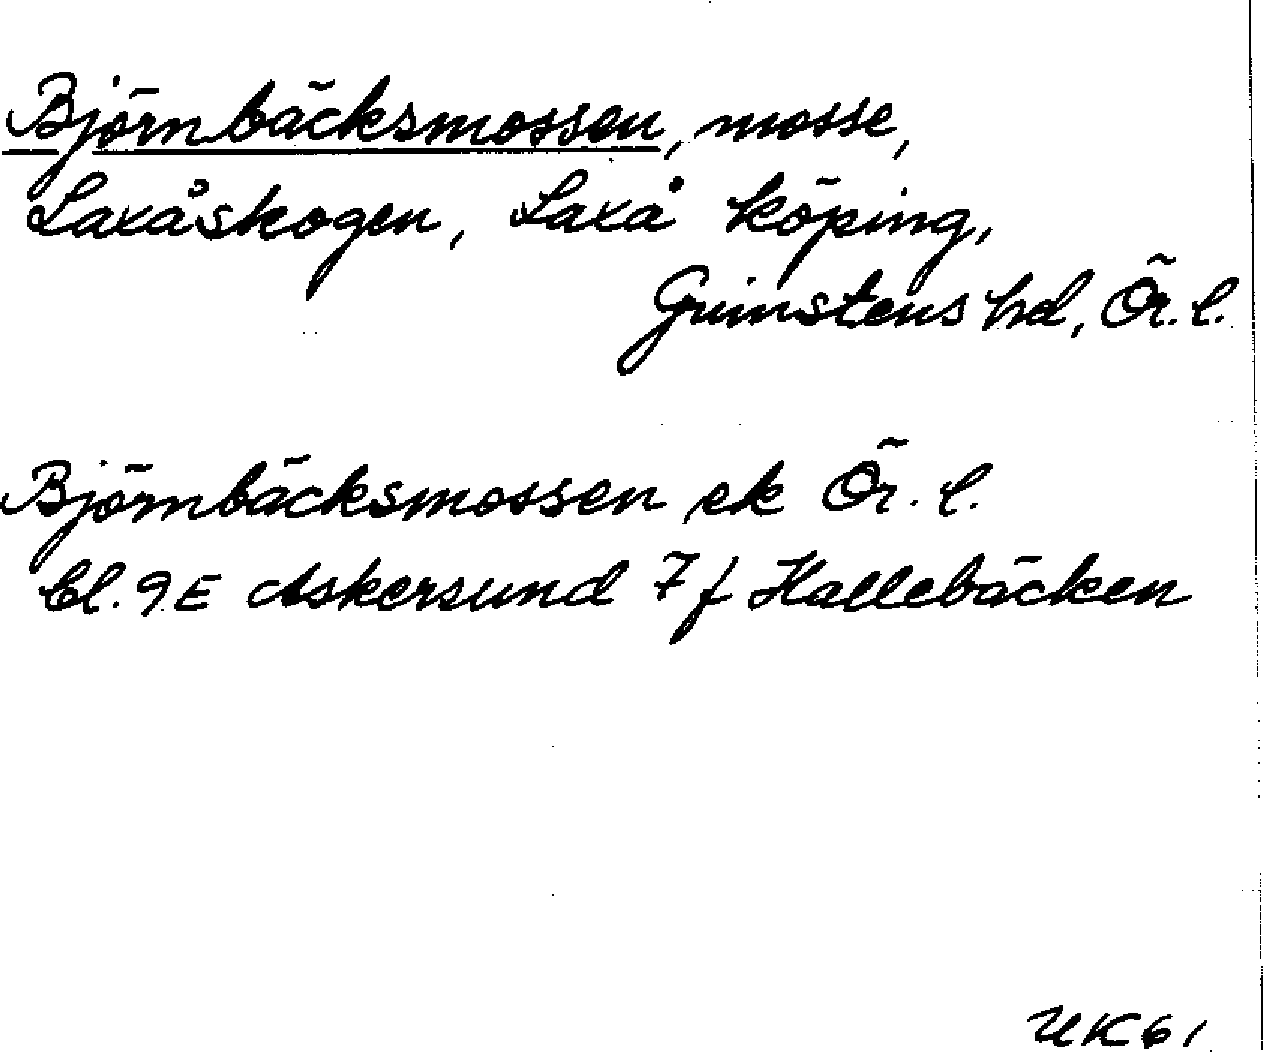 Björnbäcksmossen, mosse,
Laxåskogen, Laxå köping,
Grimstens hd, Ör. l.
Björnbäcksmossen ek Ör. l.
bl. 9E Askersund 7f Hallebäcken
UK61